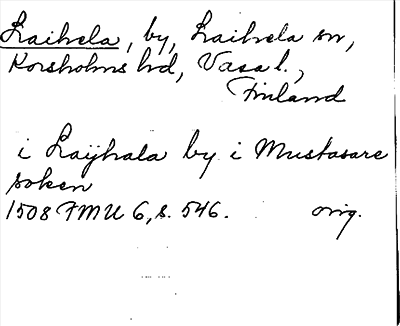 Laihela, by, Laihela sn,
Korsholms hd, Vasa l.,
Finland
i Laijhala by i Mustasare
soken
1508 FMU 6, s. 546. orig.